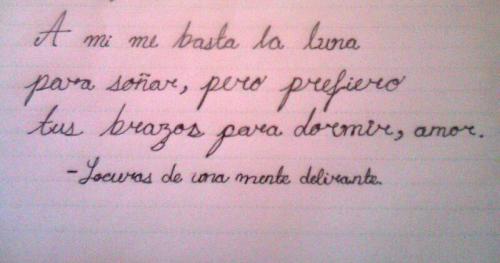 A mi me basta la luna
para soñar, pero prefiero
tus brazos para dormir, amor.
-Locuras de una mente delirante.